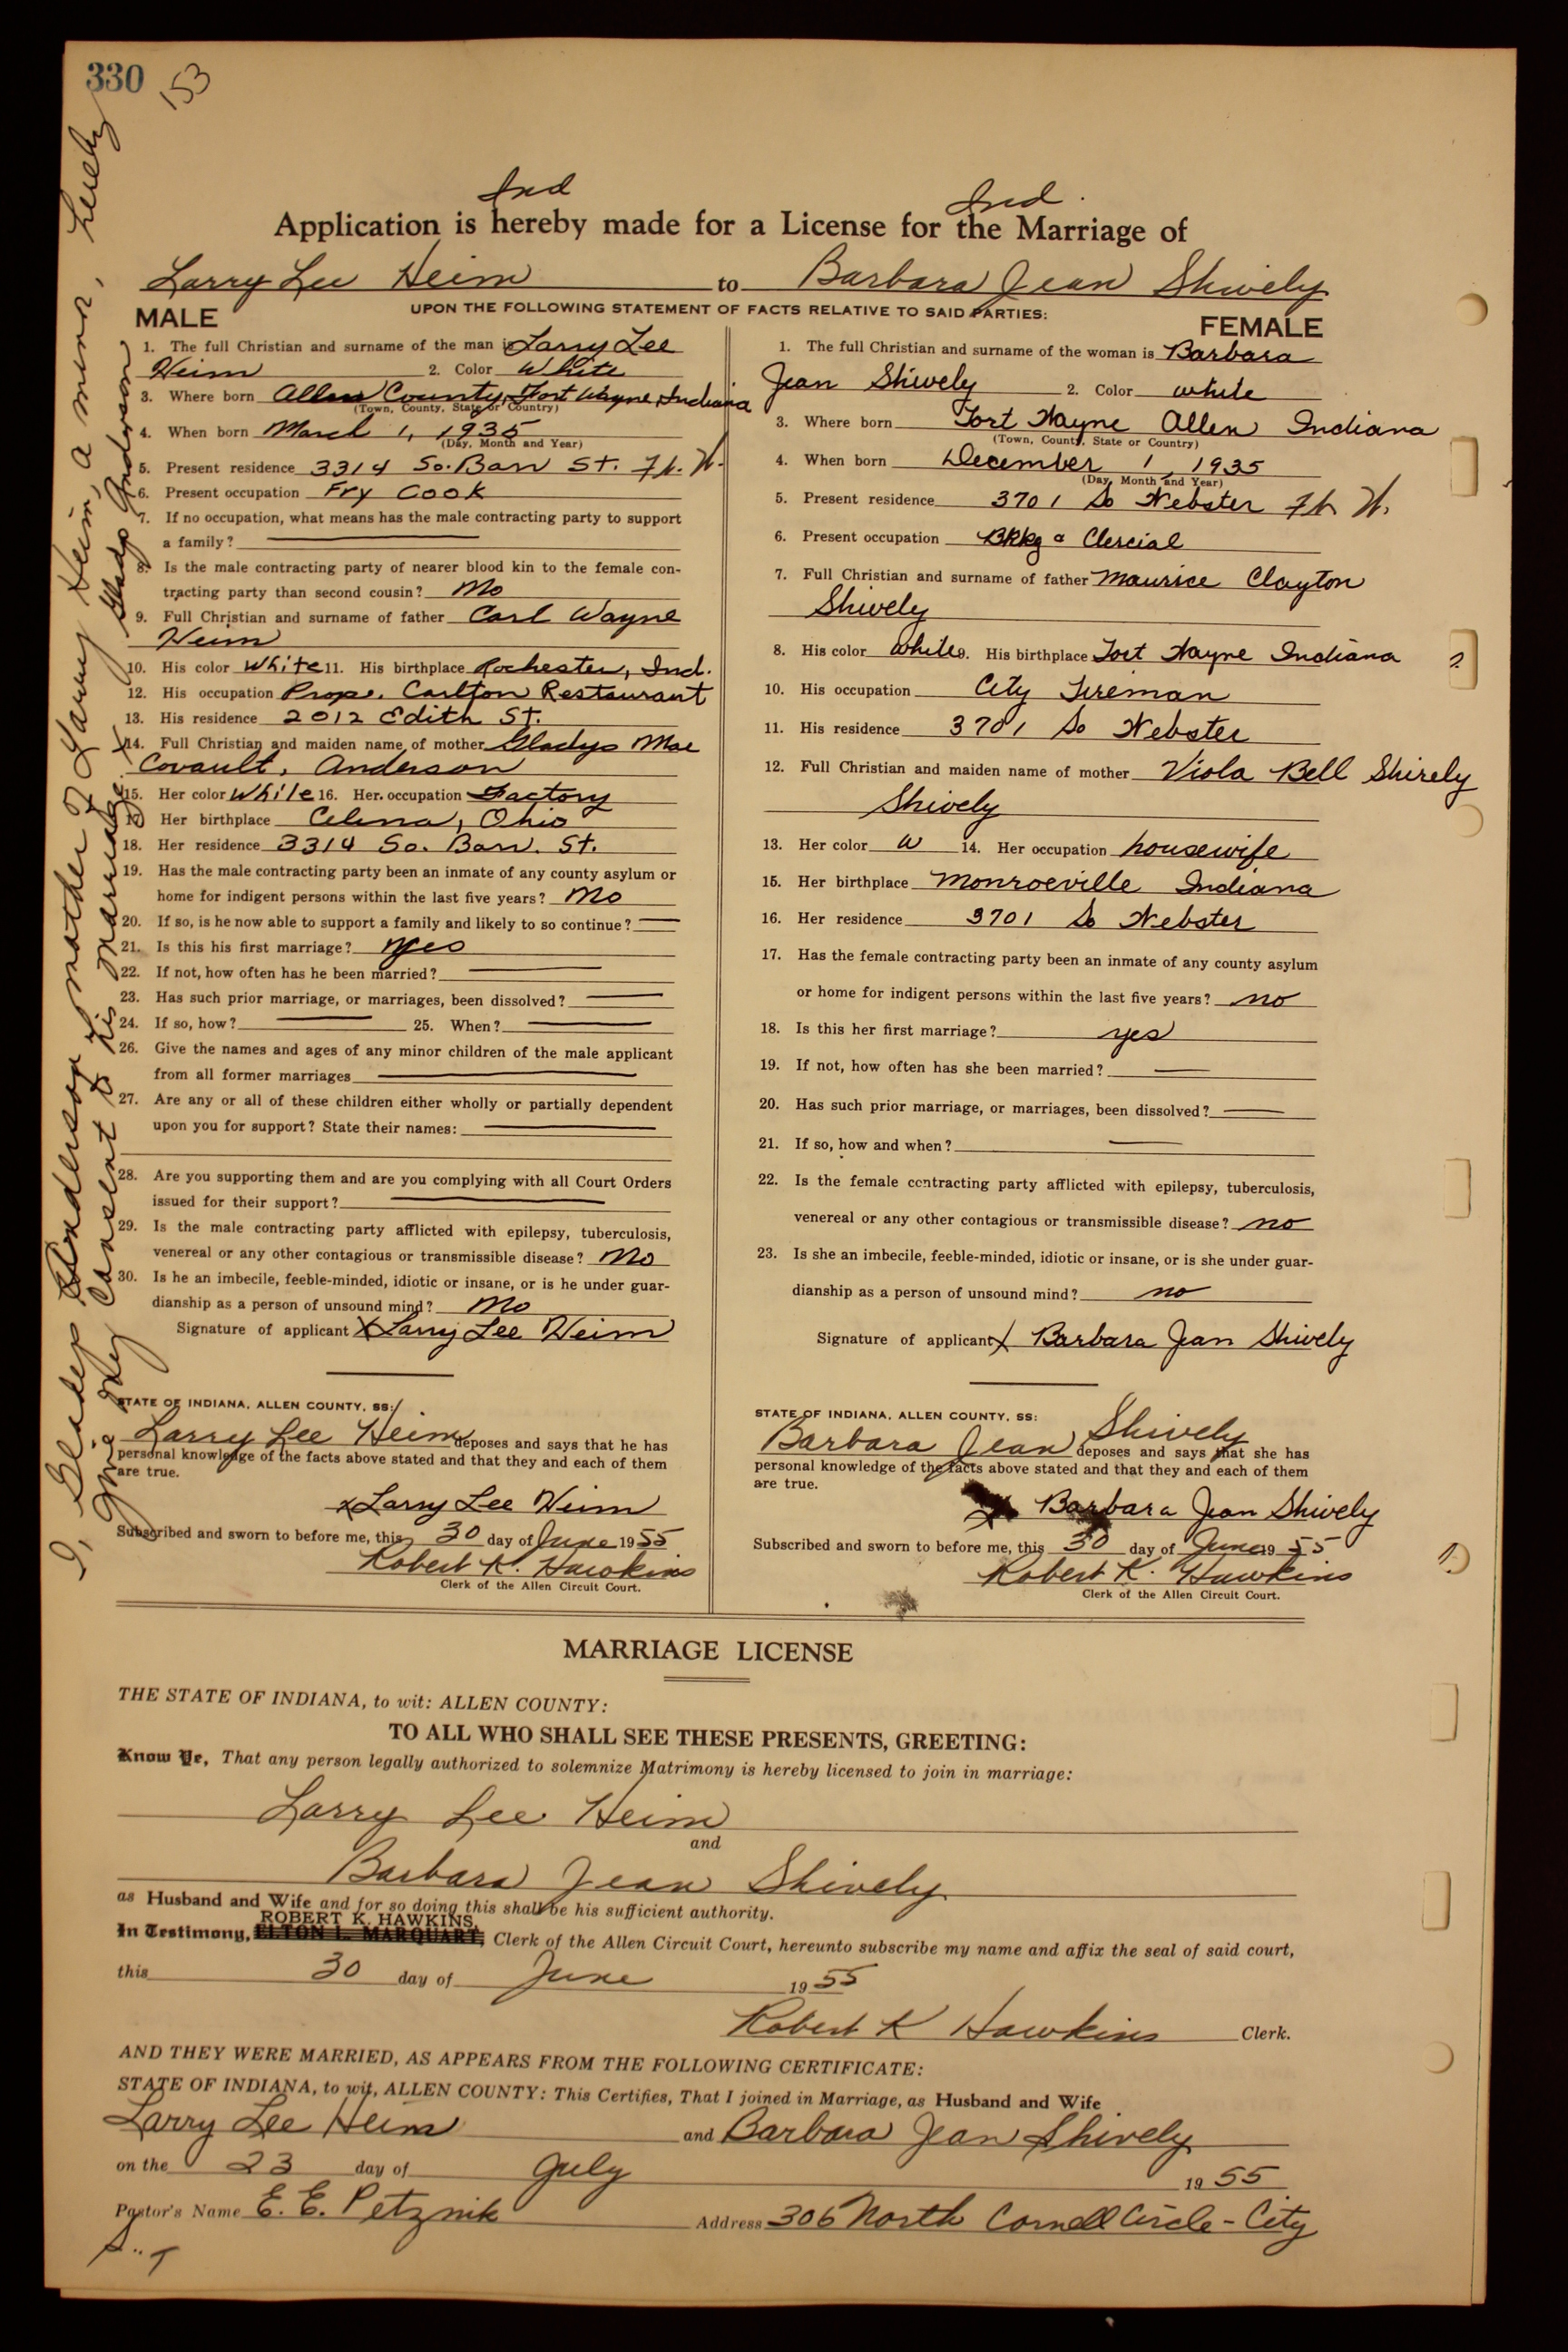 330
153
Ind Ind
Application is hereby made for a License for the Marriage of
Larry Lee Heim to Barbara Jean Shively
UPON THE FOLLOWING STATEMENT OF FACTS RELATIVE TO SAID PARTIES:
MALE
1. The full Christian and surname of the man is Larry Lee
Heim 2. Color White
3. Where born Allen County, Fort Wayne, Indiana
(Town, County, State or Country)
4. When born March 1, 1935
(Day, Month and Year)
5. Present residence 3314 So. Barr St. Ft. W.
6. Present occupation Fry Cook
7. If no occupation, what means has the male contracting party to support
a family?
8. Is the male contracting party of nearer blood kin to the female con-
tracting party than second cousin? No
9. Full Christian and surname of father Carl Wayne
Heim
10. His color White 11. His birthplace Rochester, Ind.
12. His occupation Prop. Carlton Restaurant
13. His residence 2012 Edith St.
14. Full Christian and maiden name of mother Gladys Mae
Covault, Anderson
15. Her color White 16. Her occupation Factory
Her birthplace Celina, Ohio
18. Her residence 3314 So. Barr. St.
19. Has the male contracting party been an inmate of any county asylum or
home for indigent persons within the last five years? No
20. If so, is he now able to support a family and likely to so continue?
21. Is this his first marriage? Yes
22. If not, how often has he been married?
23. Has such prior marriage, or marriages, been dissolved?
24. If so, how? 25. When?
26. Give the names and ages of any minor children of the male applicant
from all former marriages
27. Are any or all of these children either wholly or partially dependent
upon you for support? State their names:
28. Are you supporting them and are you complying with all Court Orders
issued for their support?
29. Is the male contracting party afflicted with epilepsy, tuberculosis,
venereal or any other contagious or transmissible disease? No
30. Is he an imbecile, feeble-minded, idiotic or insane, or is he under guar-
dianship as a person of unsound mind? No
Signature of applicant X Larry Lee Heim
STATE OF INDIANA, ALLEN COUNTY, SS:
Larry Lee Heim deposes and says that he has
personal knowledge of the facts above stated and that they and each of them
are true.
x Larry Lee Heim
Subscribed and sworn to before me, this 30 day of June 1955
Robert K. Hawkins
Clerk of the Allen Circuit Court.
I, Gladys Anderson mother of Larry Heim, a minor, hereby
give my consent to his marriage. Gladys Anderson
FEMALE
1. The full Christian and surname of the woman is Barbara
Jean Shively 2. Color white
3. Where born Fort Wayne Allen Indiana
(Town, County, State or Country)
4. When born December 1, 1935
(Day, Month and Year)
5. Present residence 3701 So Webster Ft W.
6. Present occupation Bkkg & Clercial
7. Full Christian and surname of father Maurice Clayton
Shively
8. His color White 9. His birthplace Fort Wayne Indiana
10. His occupation City Fireman
11. His residence 3701 So Webster
12. Full Christian and maiden name of mother Viola Bell Shirely
Shively
13. Her color W 14. Her occupation housewife
15. Her birthplace Monroeville Indiana
16. Her residence 3701 So Webster
17. Has the female contracting party been an inmate of any county asylum
or home for indigent persons within the last five years? no
18. Is this her first marriage? yes
19. If not, how often has she been married?
20. Has such prior marriage, or marriages, been dissolved?
21. If so, how and when?
22. Is the female contracting party afflicted with epilepsy, tuberculosis,
venereal or any other contagious or transmissible disease? no
23. Is she an imbecile, feeble-minded, idiotic or insane, or is she under guar-
dianship as a person of unsound mind? no
Signature of applicant X Barbara Jean Shively
STATE OF INDIANA, ALLEN COUNTY, SS:
Barbara Jean Shively deposes and says that she has
personal knowledge of the facts above stated and that they and each of them
are true.
x Barbara Jean Shively
Subscribed and sworn to before me, this 30 day of June 1955
Robert K. Hawkins
Clerk of the Allen Circuit Court.
MARRIAGE LICENSE
THE STATE OF INDIANA, to wit: ALLEN COUNTY:
TO ALL WHO SHALL SEE THESE PRESENTS, GREETING:
Know Ye, That any person legally authorized to solemnize Matrimony is hereby licensed to join in marriage:
Larry Lee Heim
and
Barbara Jean Shively
as Husband and Wife and for so doing this shall be his sufficient authority.
ROBERT K. HAWKINS,
In Testimony, ELTON L. MARQUART, Clerk of the Allen Circuit Court, hereunto subscribe my name and affix the seal of said court,
this 30 day of June 1955
Robert K Hawkins Clerk.
AND THEY WERE MARRIED, AS APPEARS FROM THE FOLLOWING CERTIFICATE:
STATE OF INDIANA, to wit, ALLEN COUNTY: This Certifies, That I joined in Marriage, as Husband and Wife
Larry Lee Heim and Barbara Jean Shively
on the 23 day of July 1955
Pastor's Name E. E. Petznik Address 306 North Cornell Circle - City